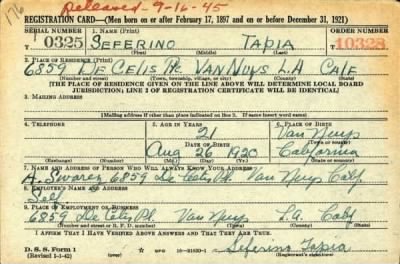 176
Released - 9-16-45
REGISTRATION CARD—(Men born on or after February 17, 1897 and on or before December 31, 1921)
SERIAL NUMBER 1. NAME (Print) ORDER NUMBER
T 0325 SEFERINO TAPIA T 10328
(First) (Middle) (Last)
2. PLACE OF RESIDENCE (Print)
6859 DE CELIS Pl. VAN NUYS L.A CALF
(Number and street) (Town, township, village, or city) (County) (State)
[THE PLACE OF RESIDENCE GIVEN ON THE LINE ABOVE WILL DETERMINE LOCAL BOARD
JURISDICTION; LINE 2 OF REGISTRATION CERTIFICATE WILL BE IDENTICAL]
3. MAILING ADDRESS
[Mailing address if other than place indicated on line 2. If same insert word same]
4. TELEPHONE 5. AGE IN YEARS 6. PLACE OF BIRTH
21 Van Nuys
DATE OF BIRTH (Town or county)
Aug 26 1920 California
(Exchange) (Number) (Mo.) (Day) (Yr.) (State or country)
7. NAME AND ADDRESS OF PERSON WHO WILL ALWAYS KNOW YOUR ADDRESS
A. Suarez 6859 De Celis Pl. Van Nuys Calf
8. EMPLOYER'S NAME AND ADDRESS
Self
9. PLACE OF EMPLOYMENT OR BUSINESS
6859 De Celis Pl. Van Nuys L.A. Calf
(Number and street or R. F. D. number) (Town) (County) (State)
I AFFIRM THAT I HAVE VERIFIED ABOVE ANSWERS AND THAT THEY ARE TRUE.
D. S. S. Form 1
(Revised 1-1-42) Seferino Tapia
(Registrant's signature)